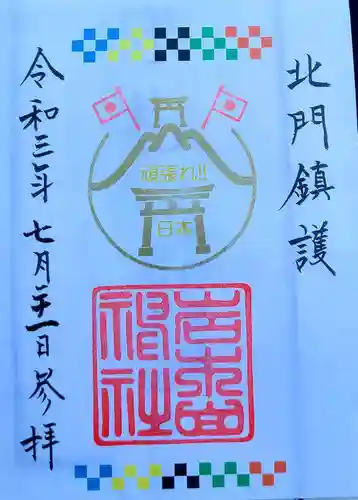 北門鎮護
頑張れ!!
日本
岩木山
神社
令和三年七月二十一日参拝